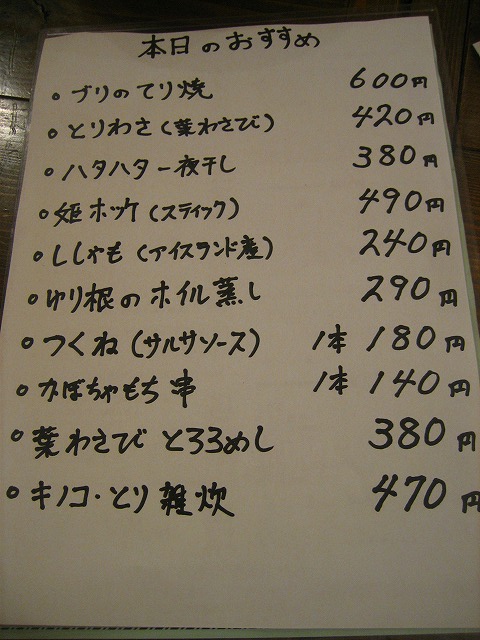 本日のおすすめ
ブリのてり焼 600円
とりわさ(葉わさび) 420円
ハタハタ一夜干し 380円
姫ホッケ(スティック) 490円
ししゃも(アイスランド産) 240円
ゆり根のホイル蒸し 290円
つくね(サルサソース) 1本 180円
かぼちゃもち串 1本 140円
葉わさびとろろめし 380円
キノコ・とり雑炊 470円